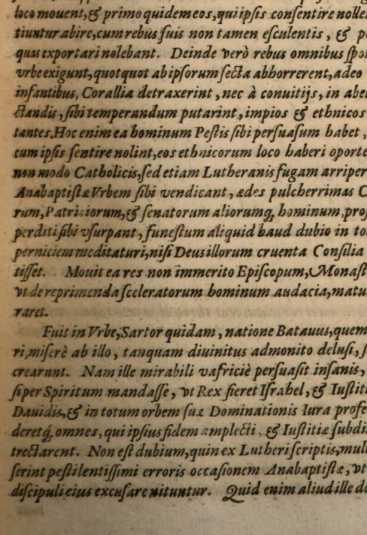 loco mouent, & primo quidem eos, qui ipsis consentire nolle
tiuntur abire, cum rebus suis non tamen esculentis, & p
quæ exportari nolebant. Deinde verò rebus omnibus spo
vrbe exigunt, quotquot ab ipsorum secta abhorrerent, adeo
infantibus, Corallia detraxerint, nec à conuitijs, in abe
ctandis, sibi temperandum putarint, impios & ethnicos
tantes. Hoc enim ea hominum Pestis sibi persuasum habet,
cum ipsis sentire nolint, eos ethnicorum loco haberi oporte
non modo Catholicis, sed etiam Lutheranis fugam arriper
Anabaptistæ Vrbem sibi vendicant, ædes pulcherrimas C
rum, Patritiorum, & senatorum aliorumq́, hominum, pro
perditi sibi vsurpant, funestum aliquid haud dubio in to
perniciem meditaturi, nisi Deus illorum cruenta Consilia
tisset. Mouit ea res non immerito Episcopum, Monast
vt de reprimenda sceleratorum hominum audacia, matu
raret.
Fuit in Vrbe, Sartor quidam, natione Batauus, quem
ri, miserè ab illo, tanquam diuinitus admonito delusi, s
crearunt. Nam ille mirabili vafriciè persuasit insanis,
si per Spiritum mandasse, vt Rex fieret Israhel, & Iustit
Dauidis, & in totum orbem suæ Dominationis Iura profe
deretq́, omnes, qui ipsius fidem amplecti, & Iustitiæ subdi
trectarent. Non est dubium, quin ex Lutheri scriptis, mul
serint pestilentissimi erroris occasionem Anabaptistæ, vt
discipuli eius excusare nituntur. Quid enim aliud ille do